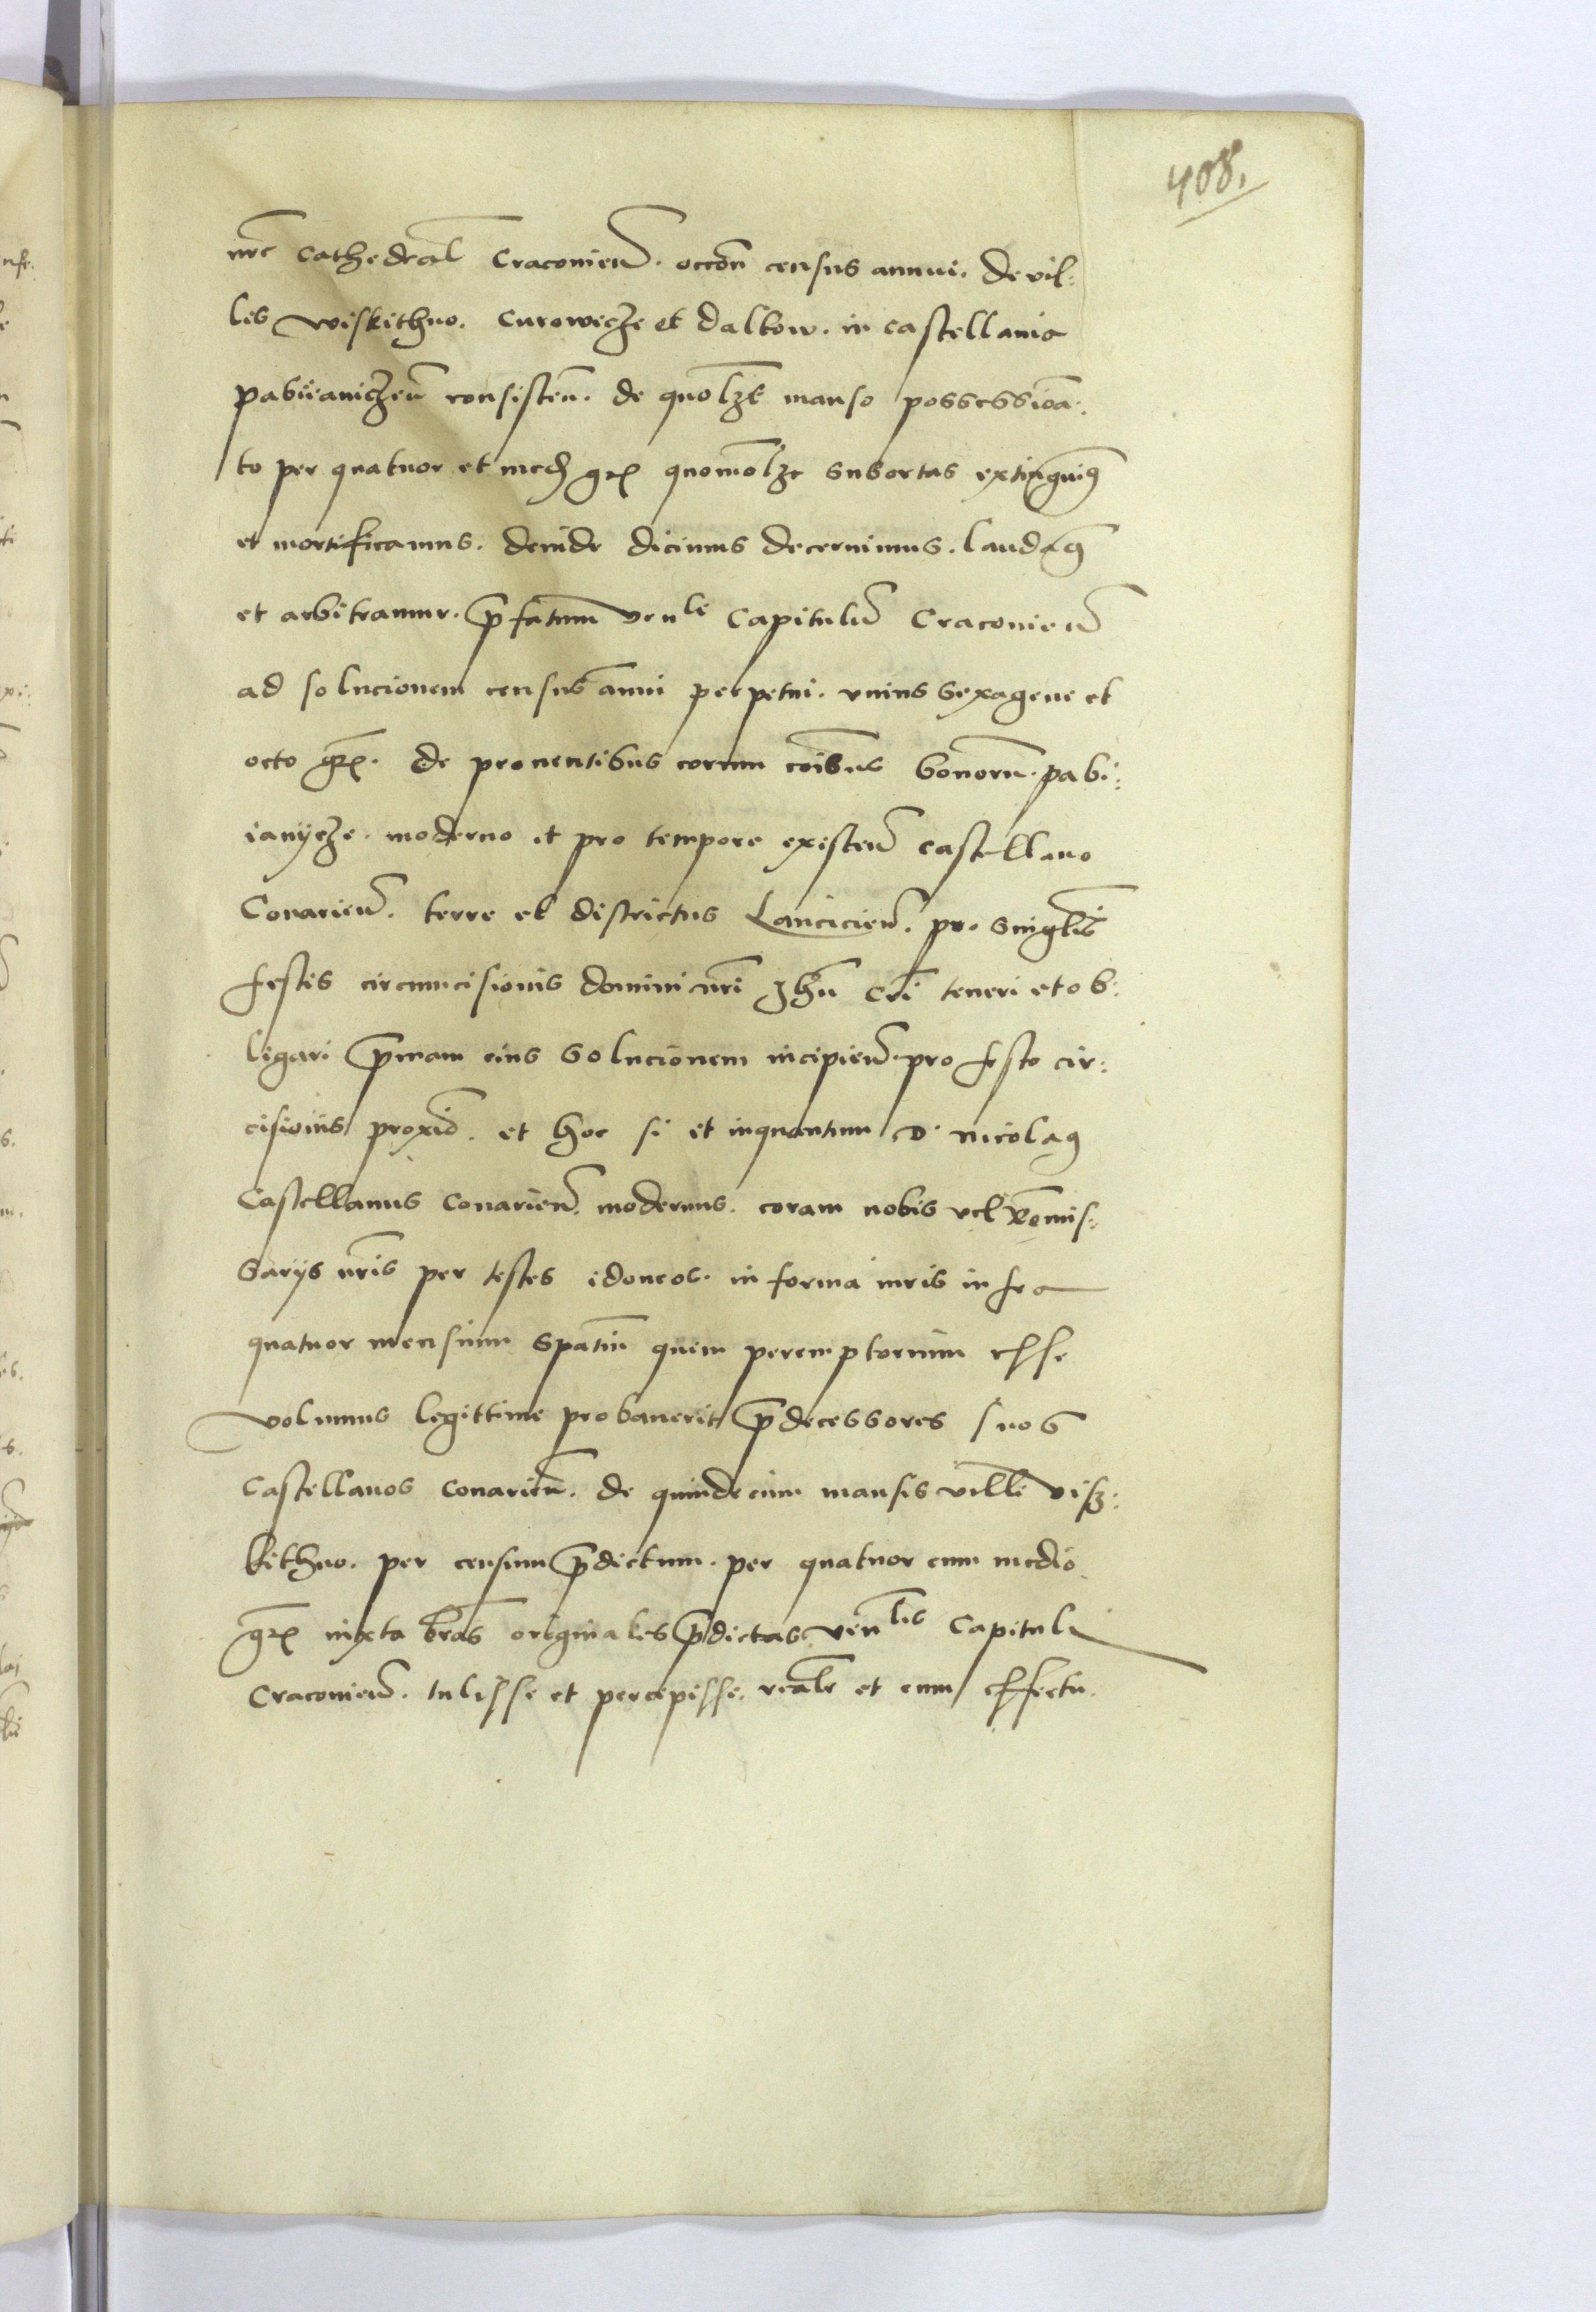 408.
nr̄e Cathedral̄ Craconien̄. occōn census annui. de vil:
lis wiskithno. Curowicze et Dalkow. in castellania
pabiianiczen̄ consisten̄. de quolȝt manso possessiōa:
to per quatuor et med̄ gr̄ quomolȝt subortas extinguīꝯ
et mortificamus. deinde dicimus decernimus. laudaꝯ
et arbitramur. p̄fatum ven^le Capitulū Craconien̄
ad solucionem census anni perpetui. unius sexagene et
octo gr̄. de prouentibus eorum cōibus bonorū. pabi:
ianycze. moderno et pro tempore existen̄ castellano
Conarien̄. terre et districtus Lancicien̄. pro singlīs
festis circumcisionis domini nr̄i Jhū Cr̄i teneri et ob:
ligari p̄mam eius solucionem incipien̄. pro festo cir:
cisiōīs proxīō. et hoc si et inquantum D. nicolaꝯ
Castellanus Conarien̄. modernus. coram nobis vel Com̄is:
sarijs nr̄is per testes idoneos. in forma iuris infra
quatuor mensium spatiū quem peremptorium esse
volumus legittime probauerit p̄decessores suos
Castellanos Conarien̄. de quindecim mansis ville visz:
kithno. per censum p̄dictum. per quatuor cum medio
gr̄ iuxta lr̄as originales p̄dictas ven^lis Capituli
Craconien̄. tulisse et percepisse. realr̄ et cum effectu.